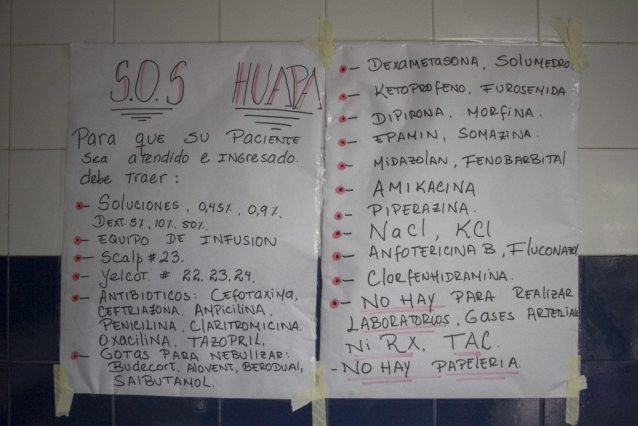 S.O.S HUAPA
Para que su Paciente
sea atendido e Ingresado.
debe Traer:
- Soluciones, 0,45%, 0,9%.
Dext. 5%, 10%. 50%.
- Equipo de Infusion
- Scalp #23.
- Yelcot. # 22, 23, 24.
- Antibioticos: Cefotaxima,
Ceftriazona. Anpicilina,
Penicilina, Claritromicina.
Oxacilina, Tazopril.
- Gotas Para Nebulizar:
Budecort, Alovent, Berodual,
Salbutamol.
- Dexametasona, Solumedrol
- Ketoprofeno, Furosemida
- Dipirona, Morfina.
- Epamin, Somazina.
- Midazolan, Fenobarbital
- Amikacina
- Piperazina.
- NaCl, KCl
- Anfotericina B, Fluconazol
- Clorfenhidramina.
- No Hay Para Realizar
Laboratorios, Gases Arteriales
Ni RX, TAC.
- No Hay Papeleria.